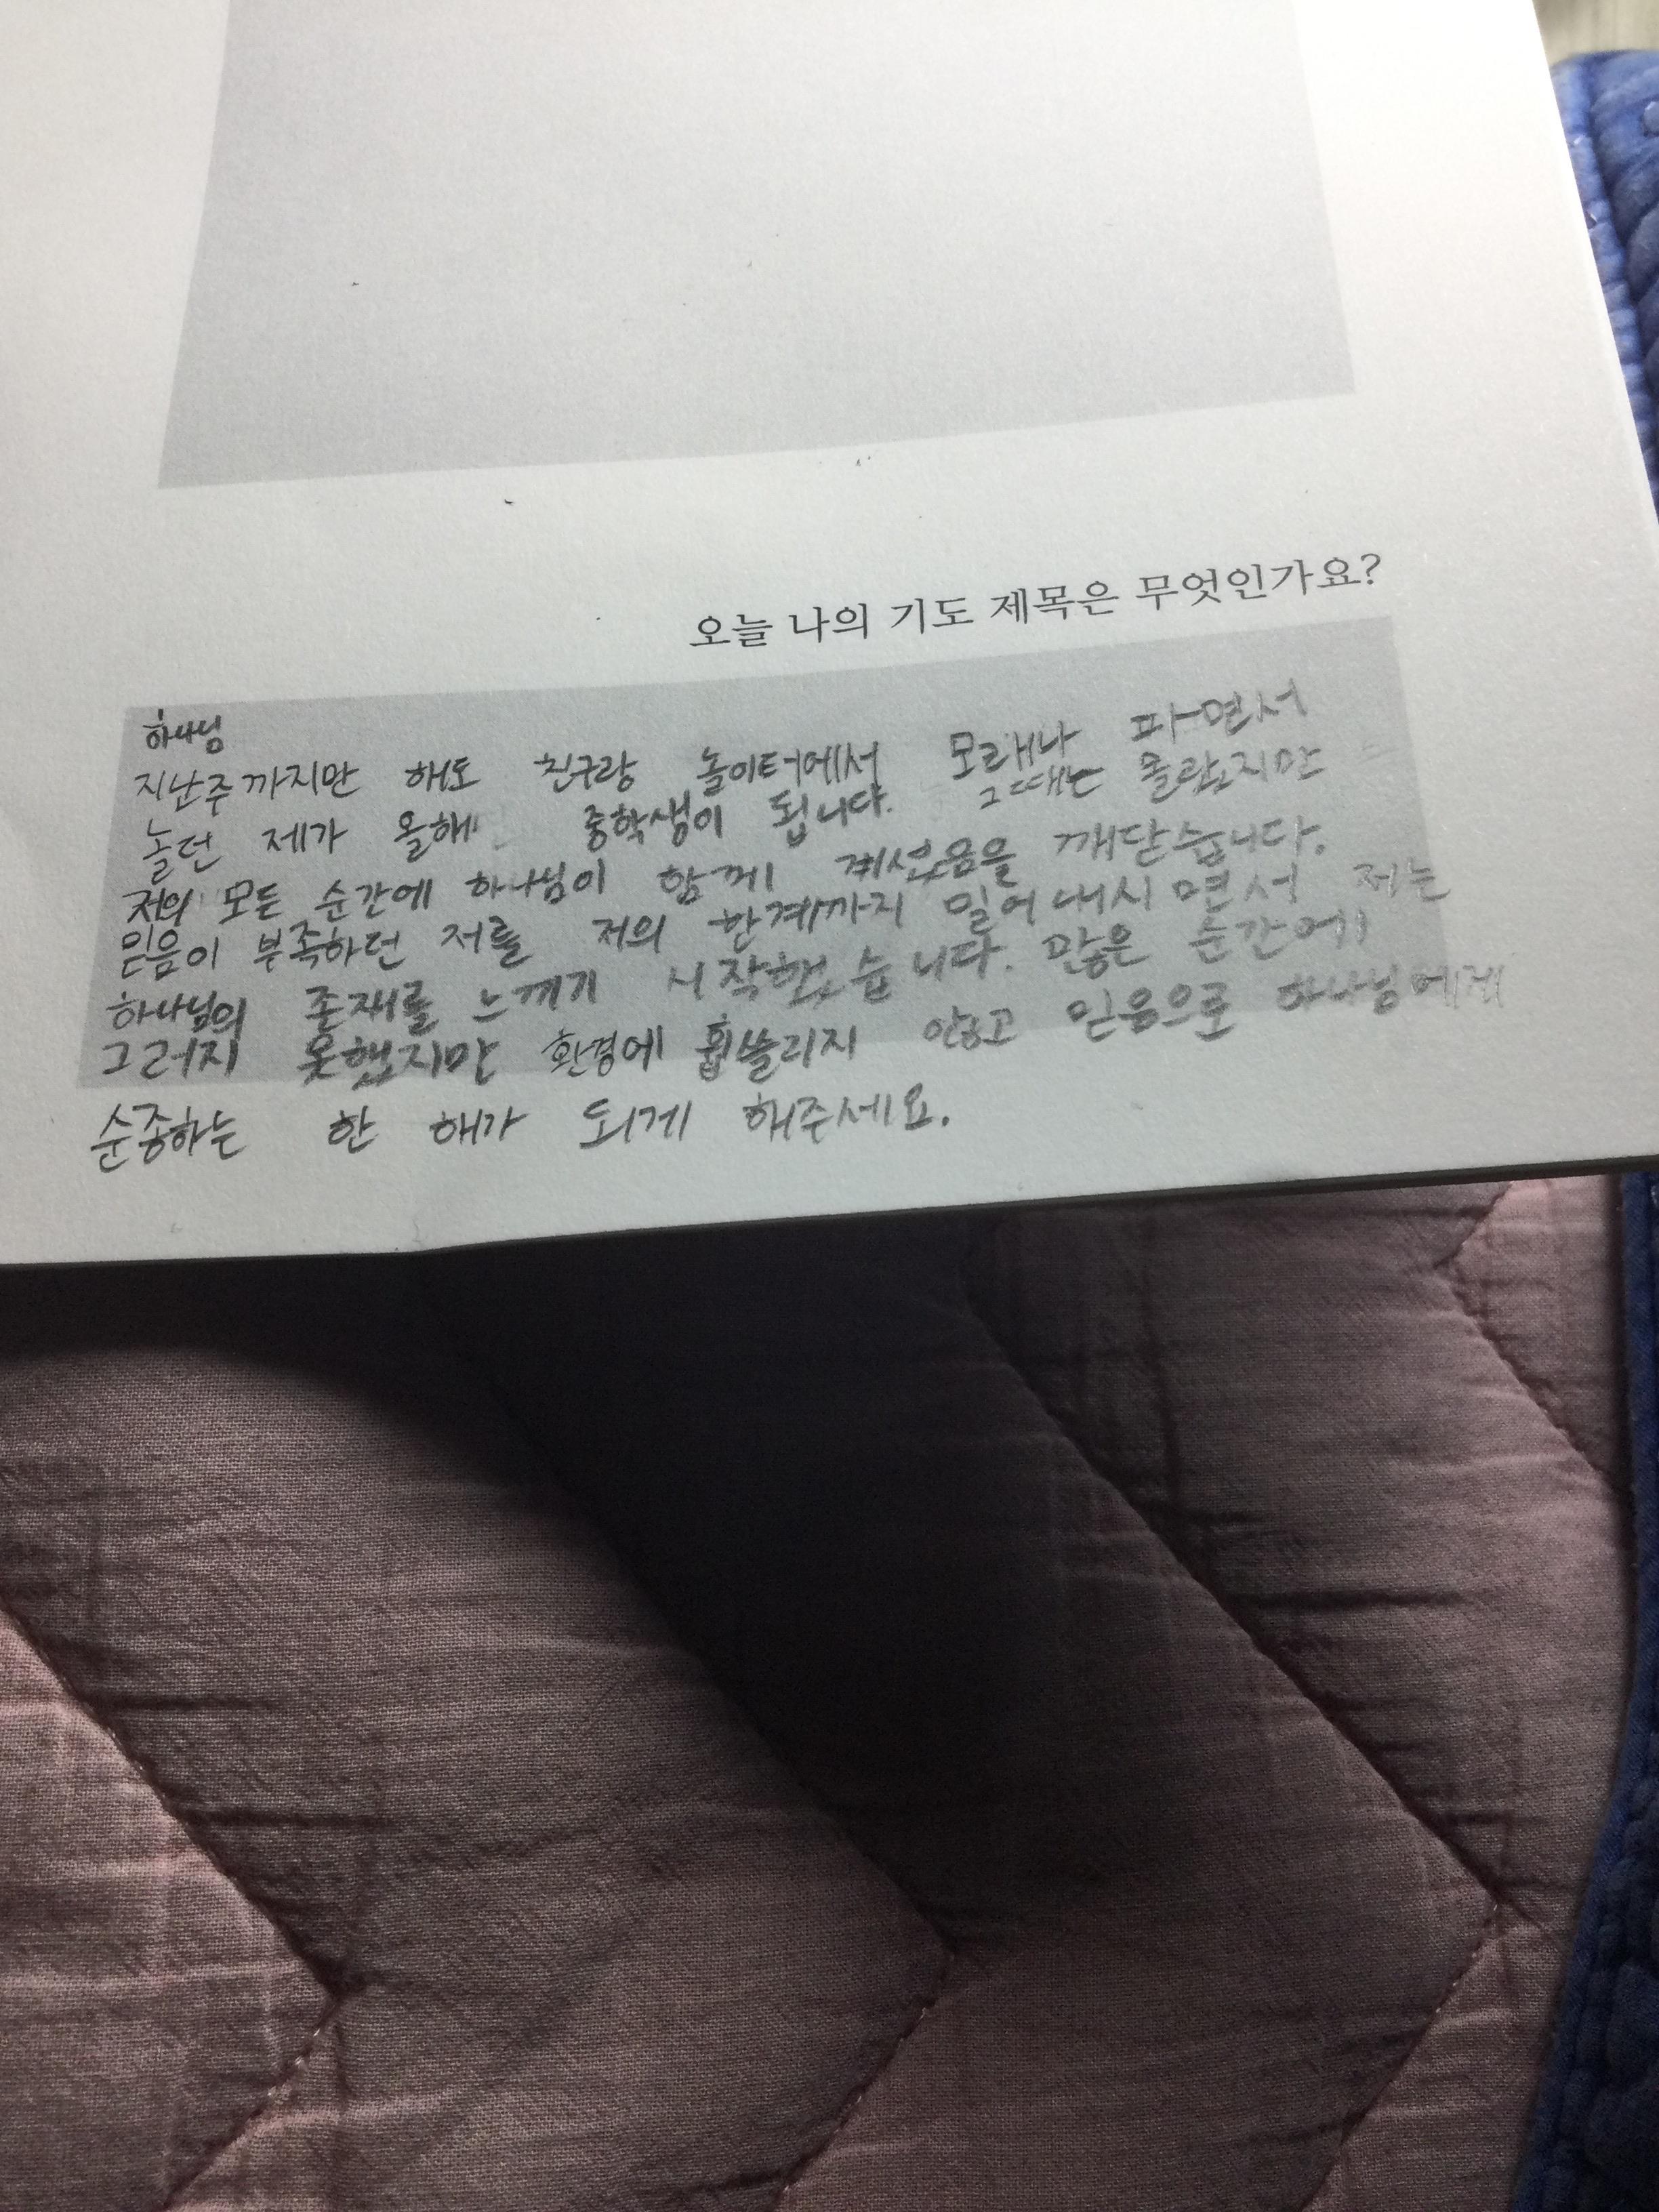 오늘 나의 기도 제목은 무엇인가요?
하나님
지난주까지만 해도 친구랑 놀이터에서 모래나 파면서
놀던 제가 올해 중학생이 됩니다. 그때는 몰랐지만
저의 모든 순간에 하나님이 함께 계셨음을 깨닫습니다.
믿음이 부족하던 저를 저의 한계까지 밀어내시면서 저는
하나님의 존재를 느끼기 시작했습니다. 많은 순간에
그러지 못했지만 환경에 휩쓸리지 않고 믿음으로 하나님에게
순종하는 한 해가 되게 해주세요.